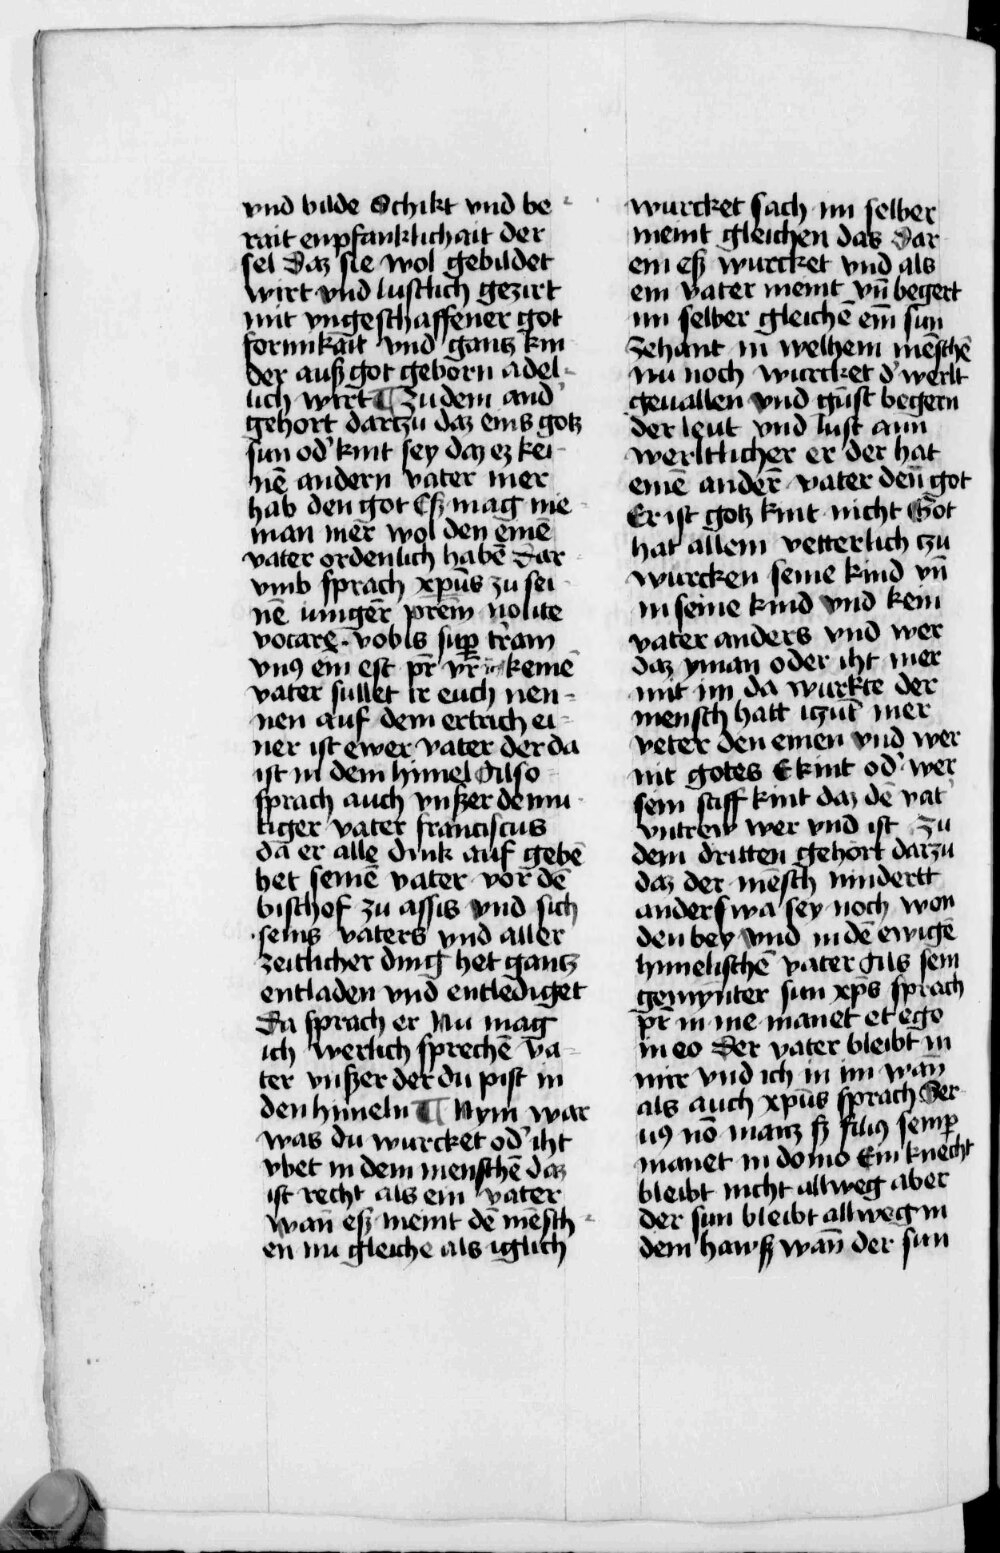 vnd bilde Schikt vnd be
rait enpfanklichait der
sel Daz sie wol gebildet
wirt vnd lustlich gezirt
mit vngeschaffener got
formikait vnd gantz kin
der auß got geborn adel-
lich wirt ¶ Zu dem and'
gehort dartzu daz eins gotz
sun od' kint sey daz ez kei
nē andern vater mer
hab den got Eß mag nie
man mer wol den einē
vater ordenlich habē Dar
vmb sprach xp̄us zu sei
nē iungēr nolite
vocare vobis sup̄ t'ram
vnꝰ em est pr̄ vr̄ keinē
vater sullet ir euch nen-
nen auf dem ertrich ei-
ner ist ewer vater der da
ist in dem himel Also
sprach auch vnßer demu
tiger vater franciscus
da er alle dink auf gebē
het seinē vater vor dē
bischof zu assis vnd sich
seins vaters vnd aller
zeitlicher ding het gantz
entladen vnd entlediget
Da sprach er Nu mag
ich werlich sprechē va-
ter vnßer der du pist in
den himeln ¶ Nym war
was du wurcket od' iht
vbet in dem menschē daz
ist recht als ein vater
wan̄ eß meint dē mēsch-
en nu gleiche als iglich
wurcket sach im selber
meint gleichen das Dar
ein eß wurcket vnd als
ein vater meint vn̄ begert
im selber gleichē ein̄ sun
Zehant in welhem mēschē
nu noch wurcket d' werlt
geuallen vnd gunst begern
der leut vnd lust ann
werltlicher er der hat
einē anderē vater den̄ got
Er ist gotz kint nicht Got
hat allein vetterlich tzu
wurcken seine kind vn̄
in seine kind vnd kein
vater anders vnd wer
daz yman oder iht mer
mit im da wurkte der
mensch hatt itzūt mer
veter den einen vnd wer
nit gotes Ekint od' wer
sein stiff kint daz dē vat'
vntrew wer vnd ist Zu
dem dritten gehort darzu
daz der mēsch nindertt
anderswa sey noch won
den bey vnd in dē ewigē
himelischē vater Als sein
gemynter sun xp̄s sprach
pr̄ in me manet et ego
in eo Der vater bleibt in
mir vnd ich in im wan̄
als auch xp̄us sprach Ser
uꝰ nō manz sz filiꝰ semp̄
manet in domo Ein knecht
bleibt nicht allweg aber
der sun bleibt allweg in
dem hawß wan̄ der sun